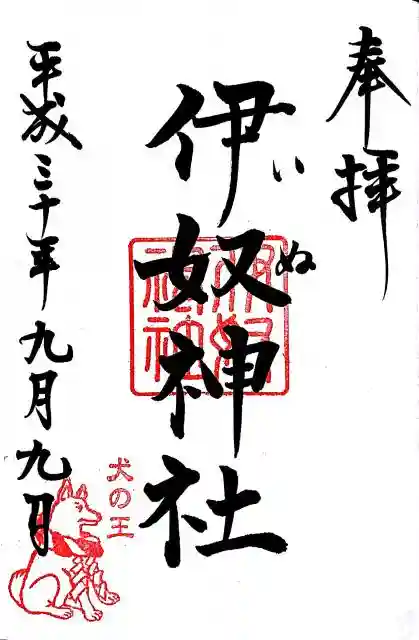 奉拝
伊奴神社
いぬ
平成三十年九月九日
犬の王